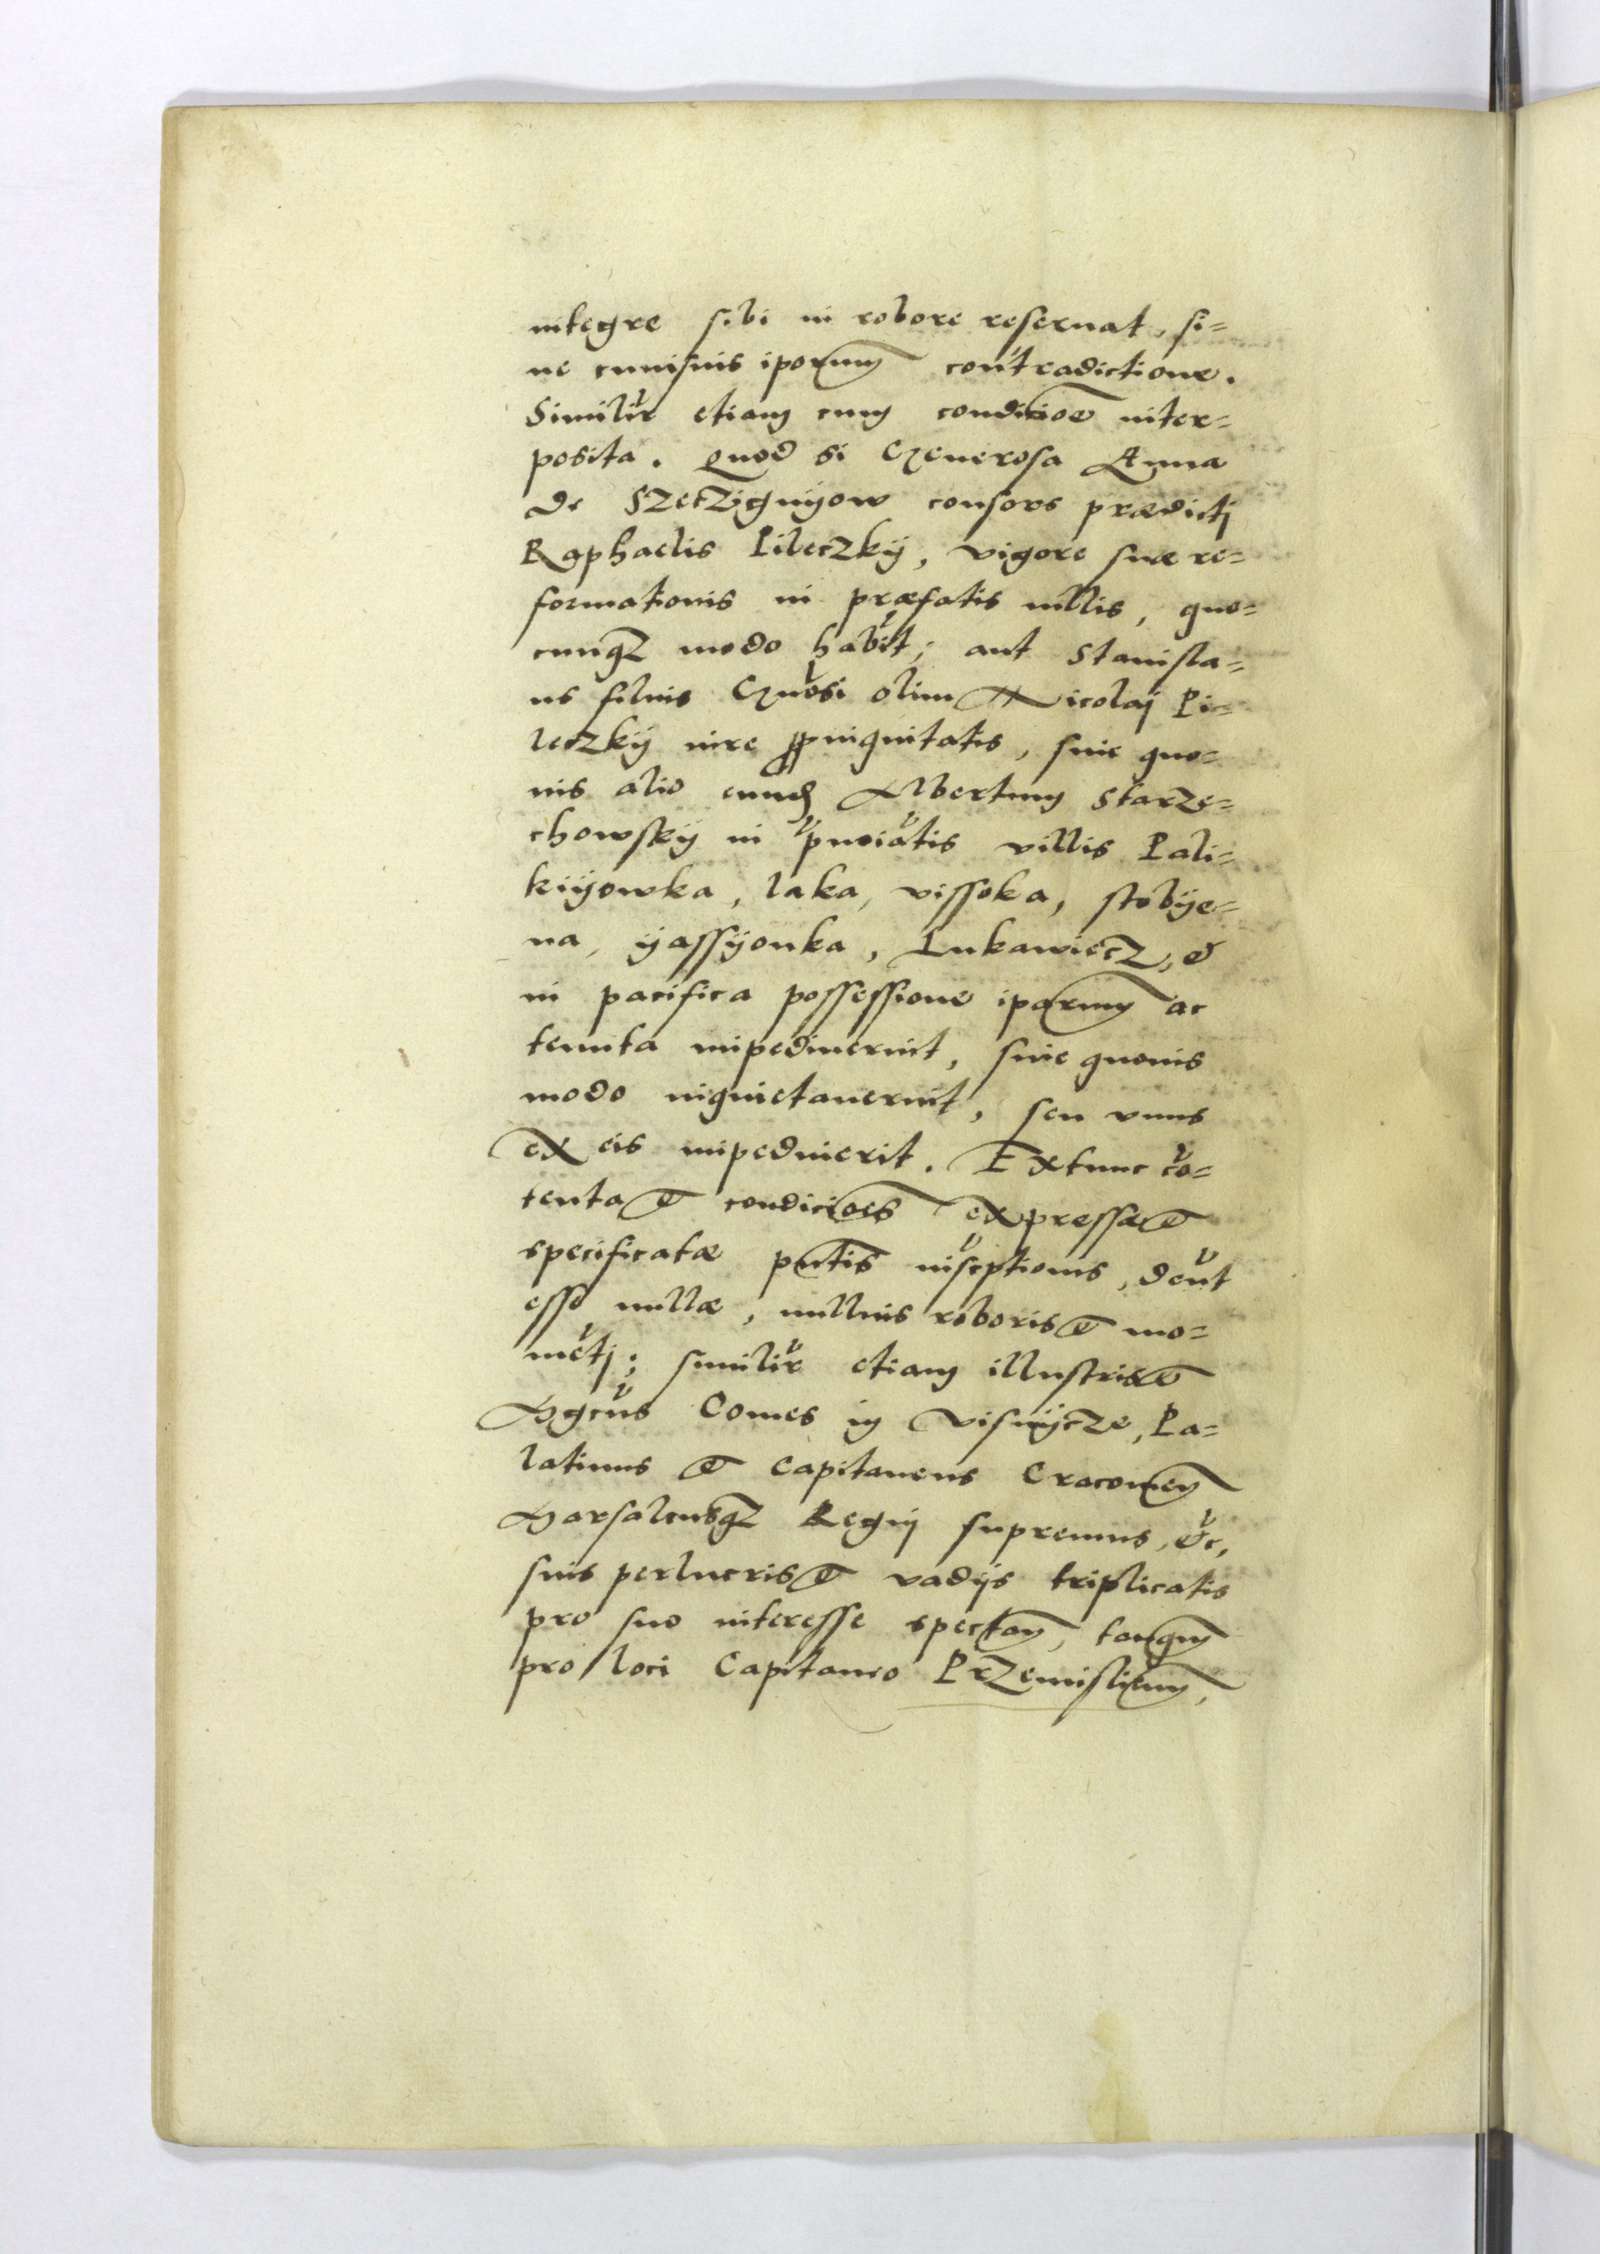 integre sibi in robore reseruat, si=
ne cuniusuis iporum contradictione.
Similir etiam cum condicioe inter=
posita. Quod si Generosa Anna
de Szeczÿgnÿow consors prædictj
Raphaelis Pileczkÿ, vigore suæ re=
formationis in præfatis uillis, quo=
cunqz modo habit; aut Stanisla=
us filius Gnosi olim Nicolaj Pi=
leczkÿ iure ppinquitatis, siue quo=
uis alio eund Albertum Starze=
chowskÿ in pnoiatis villis Pali=
kiÿowka, laka, vissoka, stobÿe=
na, ÿassÿonka, Lukawiecz, &
in pacifica possessione iparum ac
tenuta impediuerint, siue quouis
modo inquietauerint, seu vnus
ex eis impediuerit. Extunc co=
tenta & condicioes expressæ &
specificatæ pntis inscptionis, debut
esse nullæ, nullius roboris & mo=
metj; similir etiam illustris &
Mgcus Comes in Visnÿcze, Pa=
latinus & Capitaneus Cracouien
Marsalcusqz Regnj supremus, &c,
suis perlucris & vadijs triplicatis
pro suo interesse spectan, tanqm
pro loci Capitaneo Przemislien,